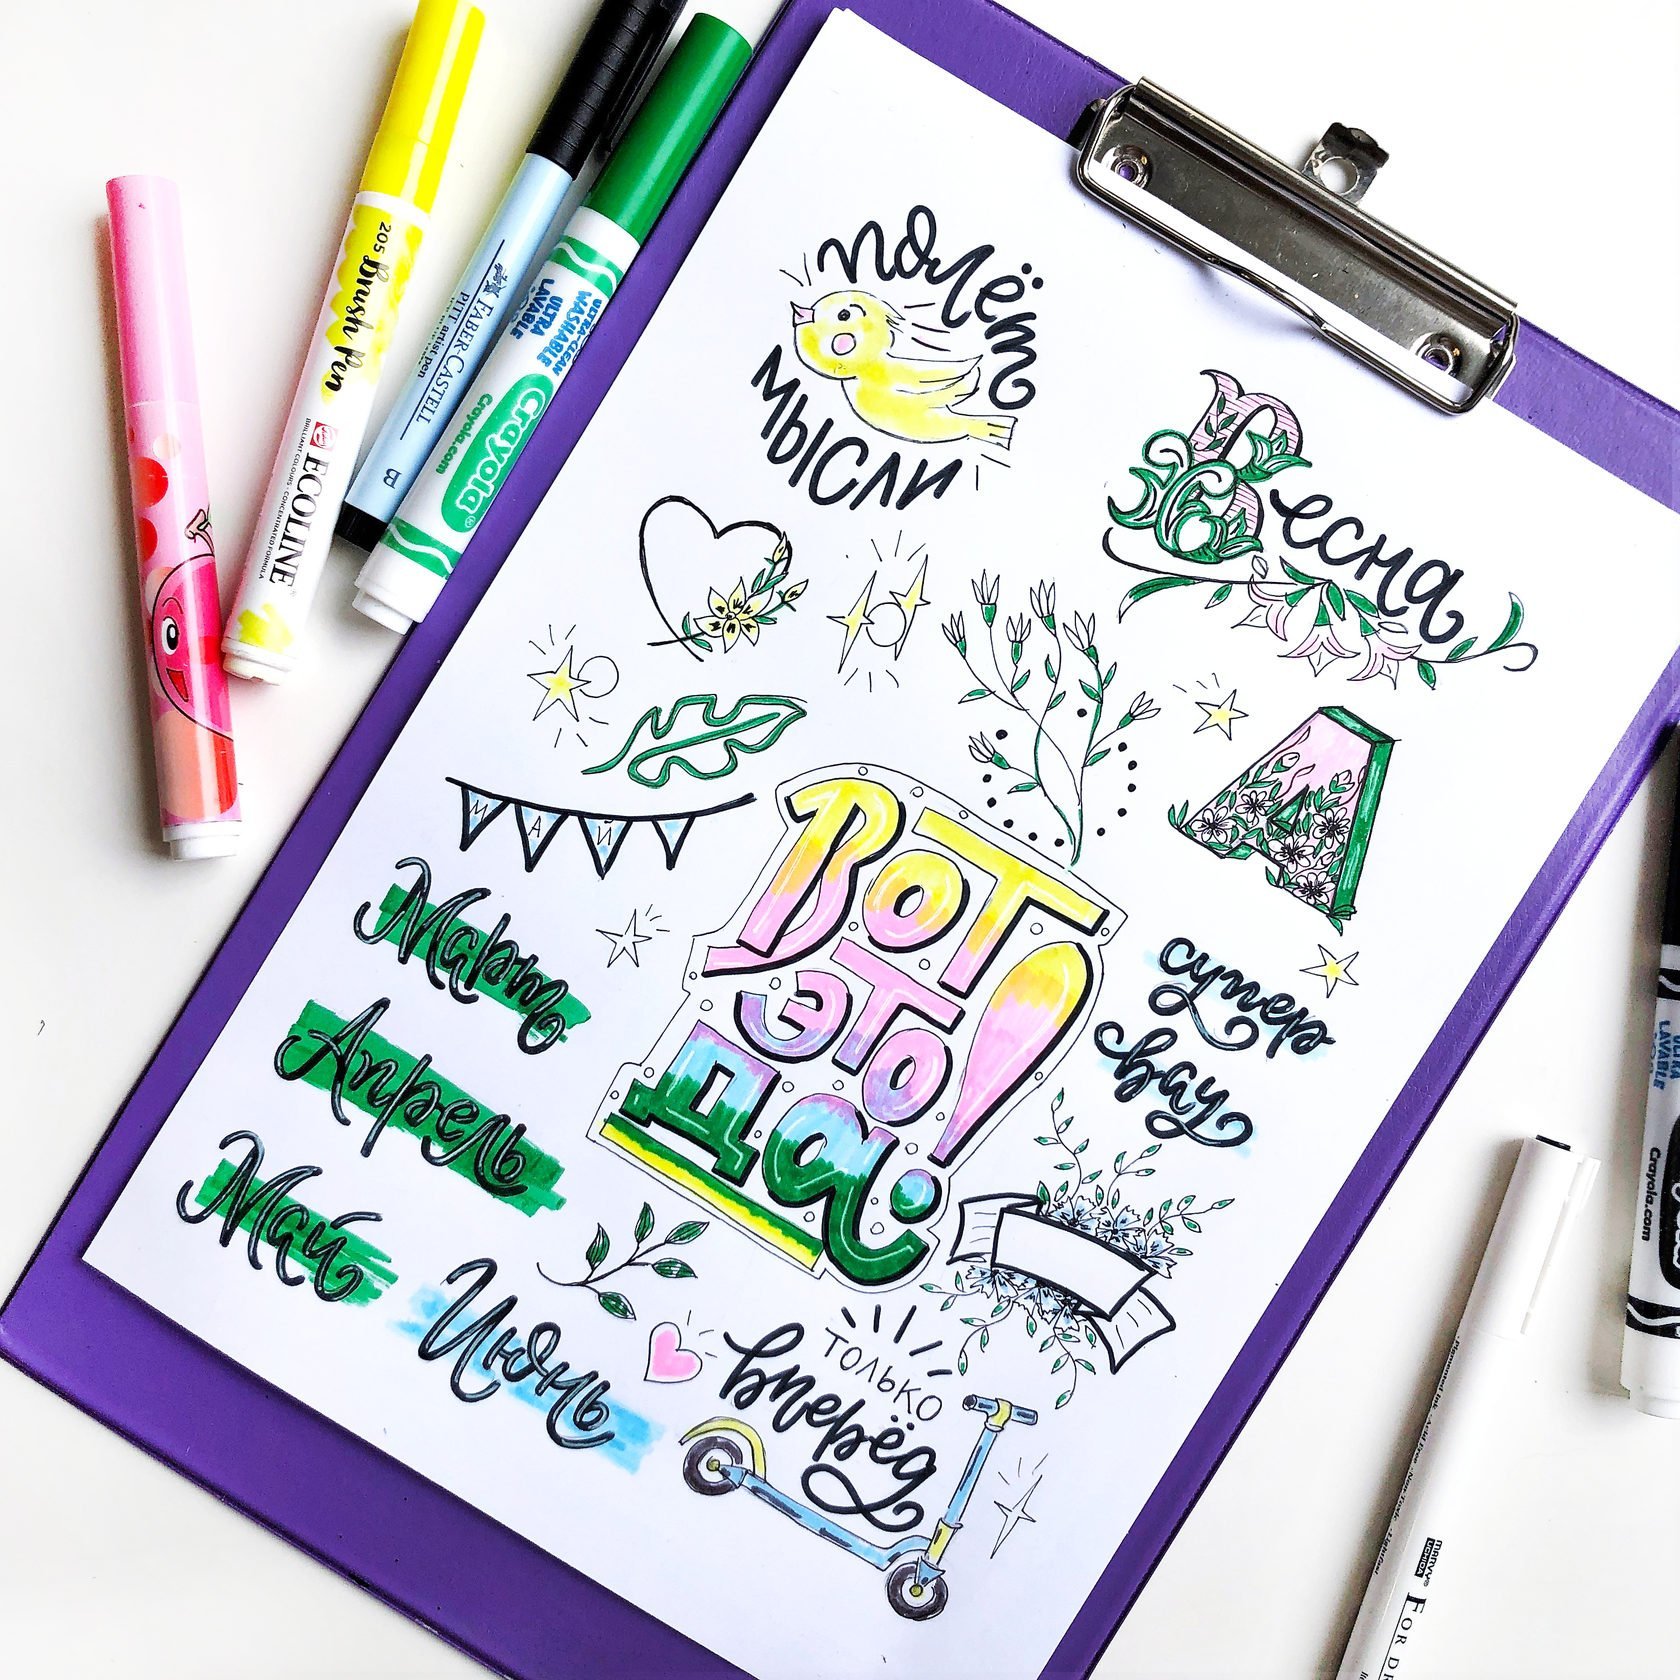 полёт
мысли
Весна
А
МАЙ
Март
Апрель
Май
Июнь
Вот
это
да!
супер
вау
только
вперёд
205 Brush Pen
ECOLINE
BRILLIANT COLOURS · CONCENTRATED FORMULA
FABER-CASTELL
PITT artist pen
B
ULTRA-CLEAN
WASHABLE
ULTRA
LAVABLE
Crayola
Crayola.com
ULTRA
LAVABLE
Crayola.com
MARVY
UCHIDA
FOR DR